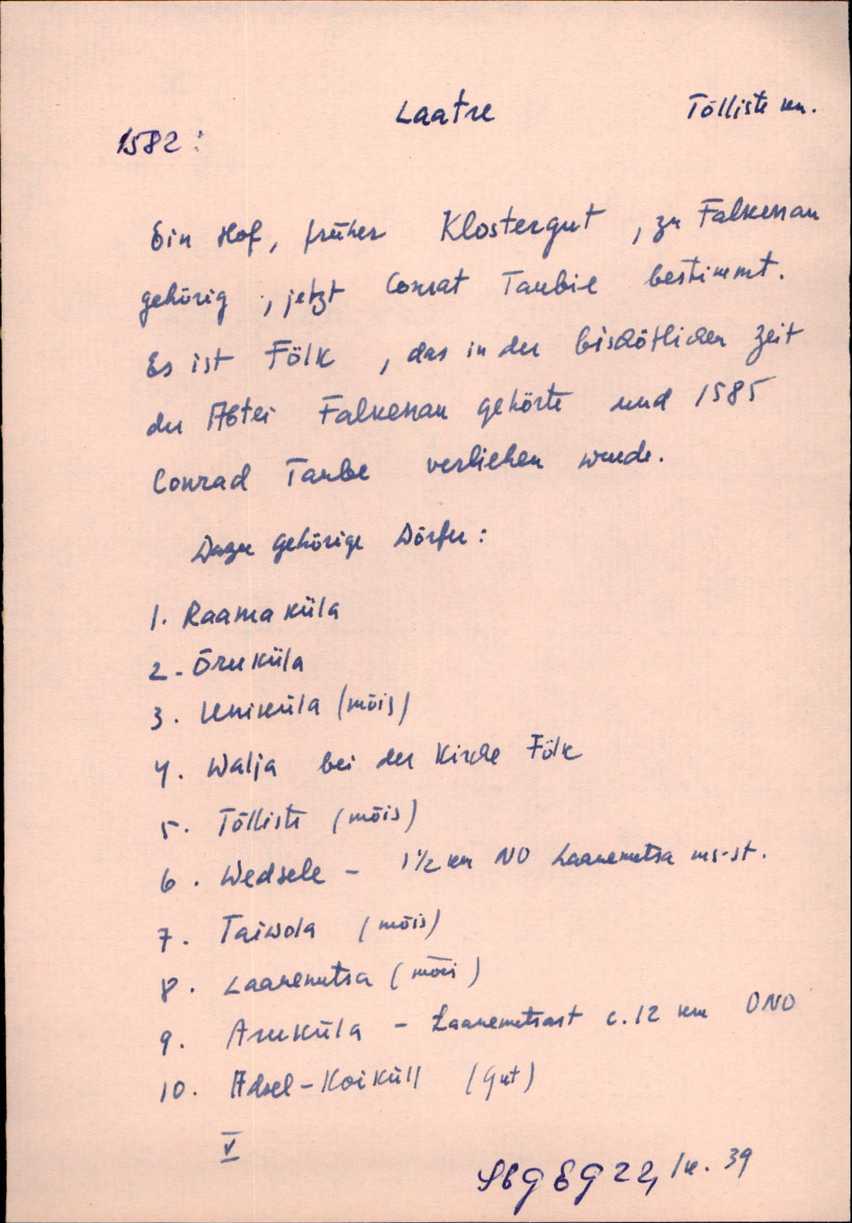 Laatre Tõlliste km.
1582:
Ein Hof, früher Klostergut, zu Falkenau
gehörig, jetzt Conrat Taubie bestimmt.
Es ist Fölk, das in der bischöflichen Zeit
der Abtei Falkenau gehörte und 1585
Conrad Taube verliehen wurde.
Dazu gehörige Dörfer:
1. Raamaküla
2. Õruküla
3. Uniküla (mõis)
4. Walja bei der Kirche Fölk
5. Tõlliste (mõis)
6. Wedsele - 1 1/2 km NO Laanemetsa ms-st.
7. Taiwola (mõis)
8. Laanemetsa (mõis)
9. Aruküla - Laanemetsast c. 12 km ONO
10. Adsel-Koiküll (Gut)
V
SbgEg 22, lk. 39